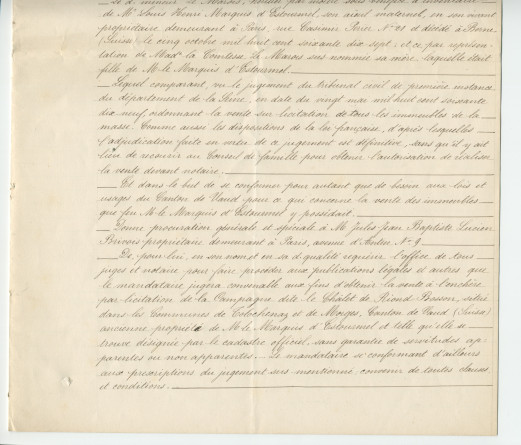 Le d. mineur Le Marois, héritier par moitié sous bénéfice d'inventaire
de Mr Louis Henri Marquis d'Estourmel, son aïeul maternel, en son vivant
propriétaire demeurant à Paris, rue Casimir Périer No 21 et décédé à Berne
(Suisse) le cinq octobre mil huit cent soixante dix sept, et ce par représen-
tation de Made la Comtesse Le Marois sus-nommée sa mère, laquelle était
fille de M. le Marquis d'Estourmel.
Lequel comparant, vu le jugement du tribunal civil de première instance
du département de la Seine, en date du vingt mai mil huit cent soixante
dix neuf, ordonnant la vente sur licitation de tous les immeubles de la
masse. Comme aussi les dispositions de la loi française, d'après lesquelles
l'adjudication faite en vertu de ce jugement est définitive, sans qu'il y ait
lieu de recourir au Conseil de famille pour obtenir l'autorisation de réaliser
la vente devant notaire.
Et dans le but de se conformer pour autant que de besoin aux lois et
usages du Canton de Vaud, pour ce qui concerne la vente des immeubles
que feu M. le Marquis d'Estourmel y possédait.
Donne procuration générale et spéciale à Mr Jules Jean Baptiste Lucien
propriétaire demeurant à Paris, avenue d'Antin No 9
De, pour lui, en son nom et en sa d. qualité requérir l'office de tous
juges et notaire pour faire procéder aux publications légales et autres que
le mandataire jugera convenable aux fins d'obtenir la vente à l'enchère
par licitation de la Campagne dite le Châlet de Riond-Bosson, située
dans les Communes de Tolochenaz et de Morges, Canton de Vaud (Suisse)
ancienne propriété de M. le Marquis d'Estourmel et telle qu'elle se
trouve désignée par le cadastre officiel, sans garantie de servitudes ap-
parentes ou non apparentes. Le mandataire se conformant d'ailleurs
aux prescriptions du jugement sus-mentionné, convenir de toutes clauses
et conditions.